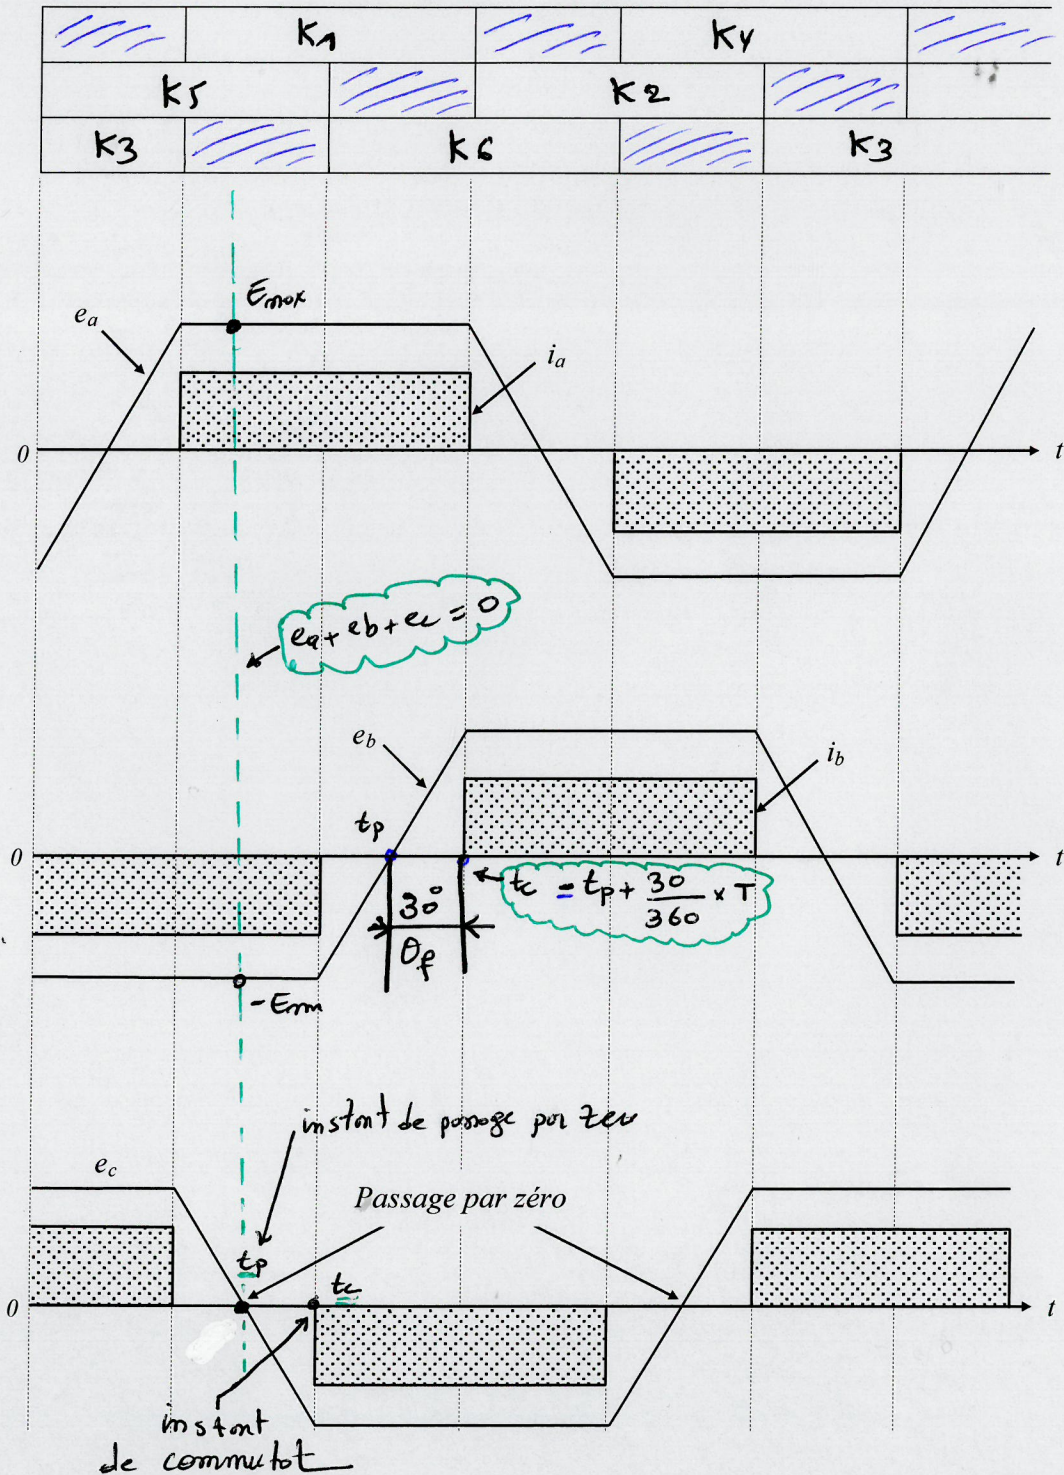 K1 K4
K5 K2
K3 K6 K3
Emax
e_a
i_a
0 t
ea + eb + ec = 0
e_b
i_b
tp
0 t
tc = tp + 30/360 × T
30°
θf
-Em
instant de passage par zero
e_c
Passage par zéro
tp
tc
0 t
instant
de commutat